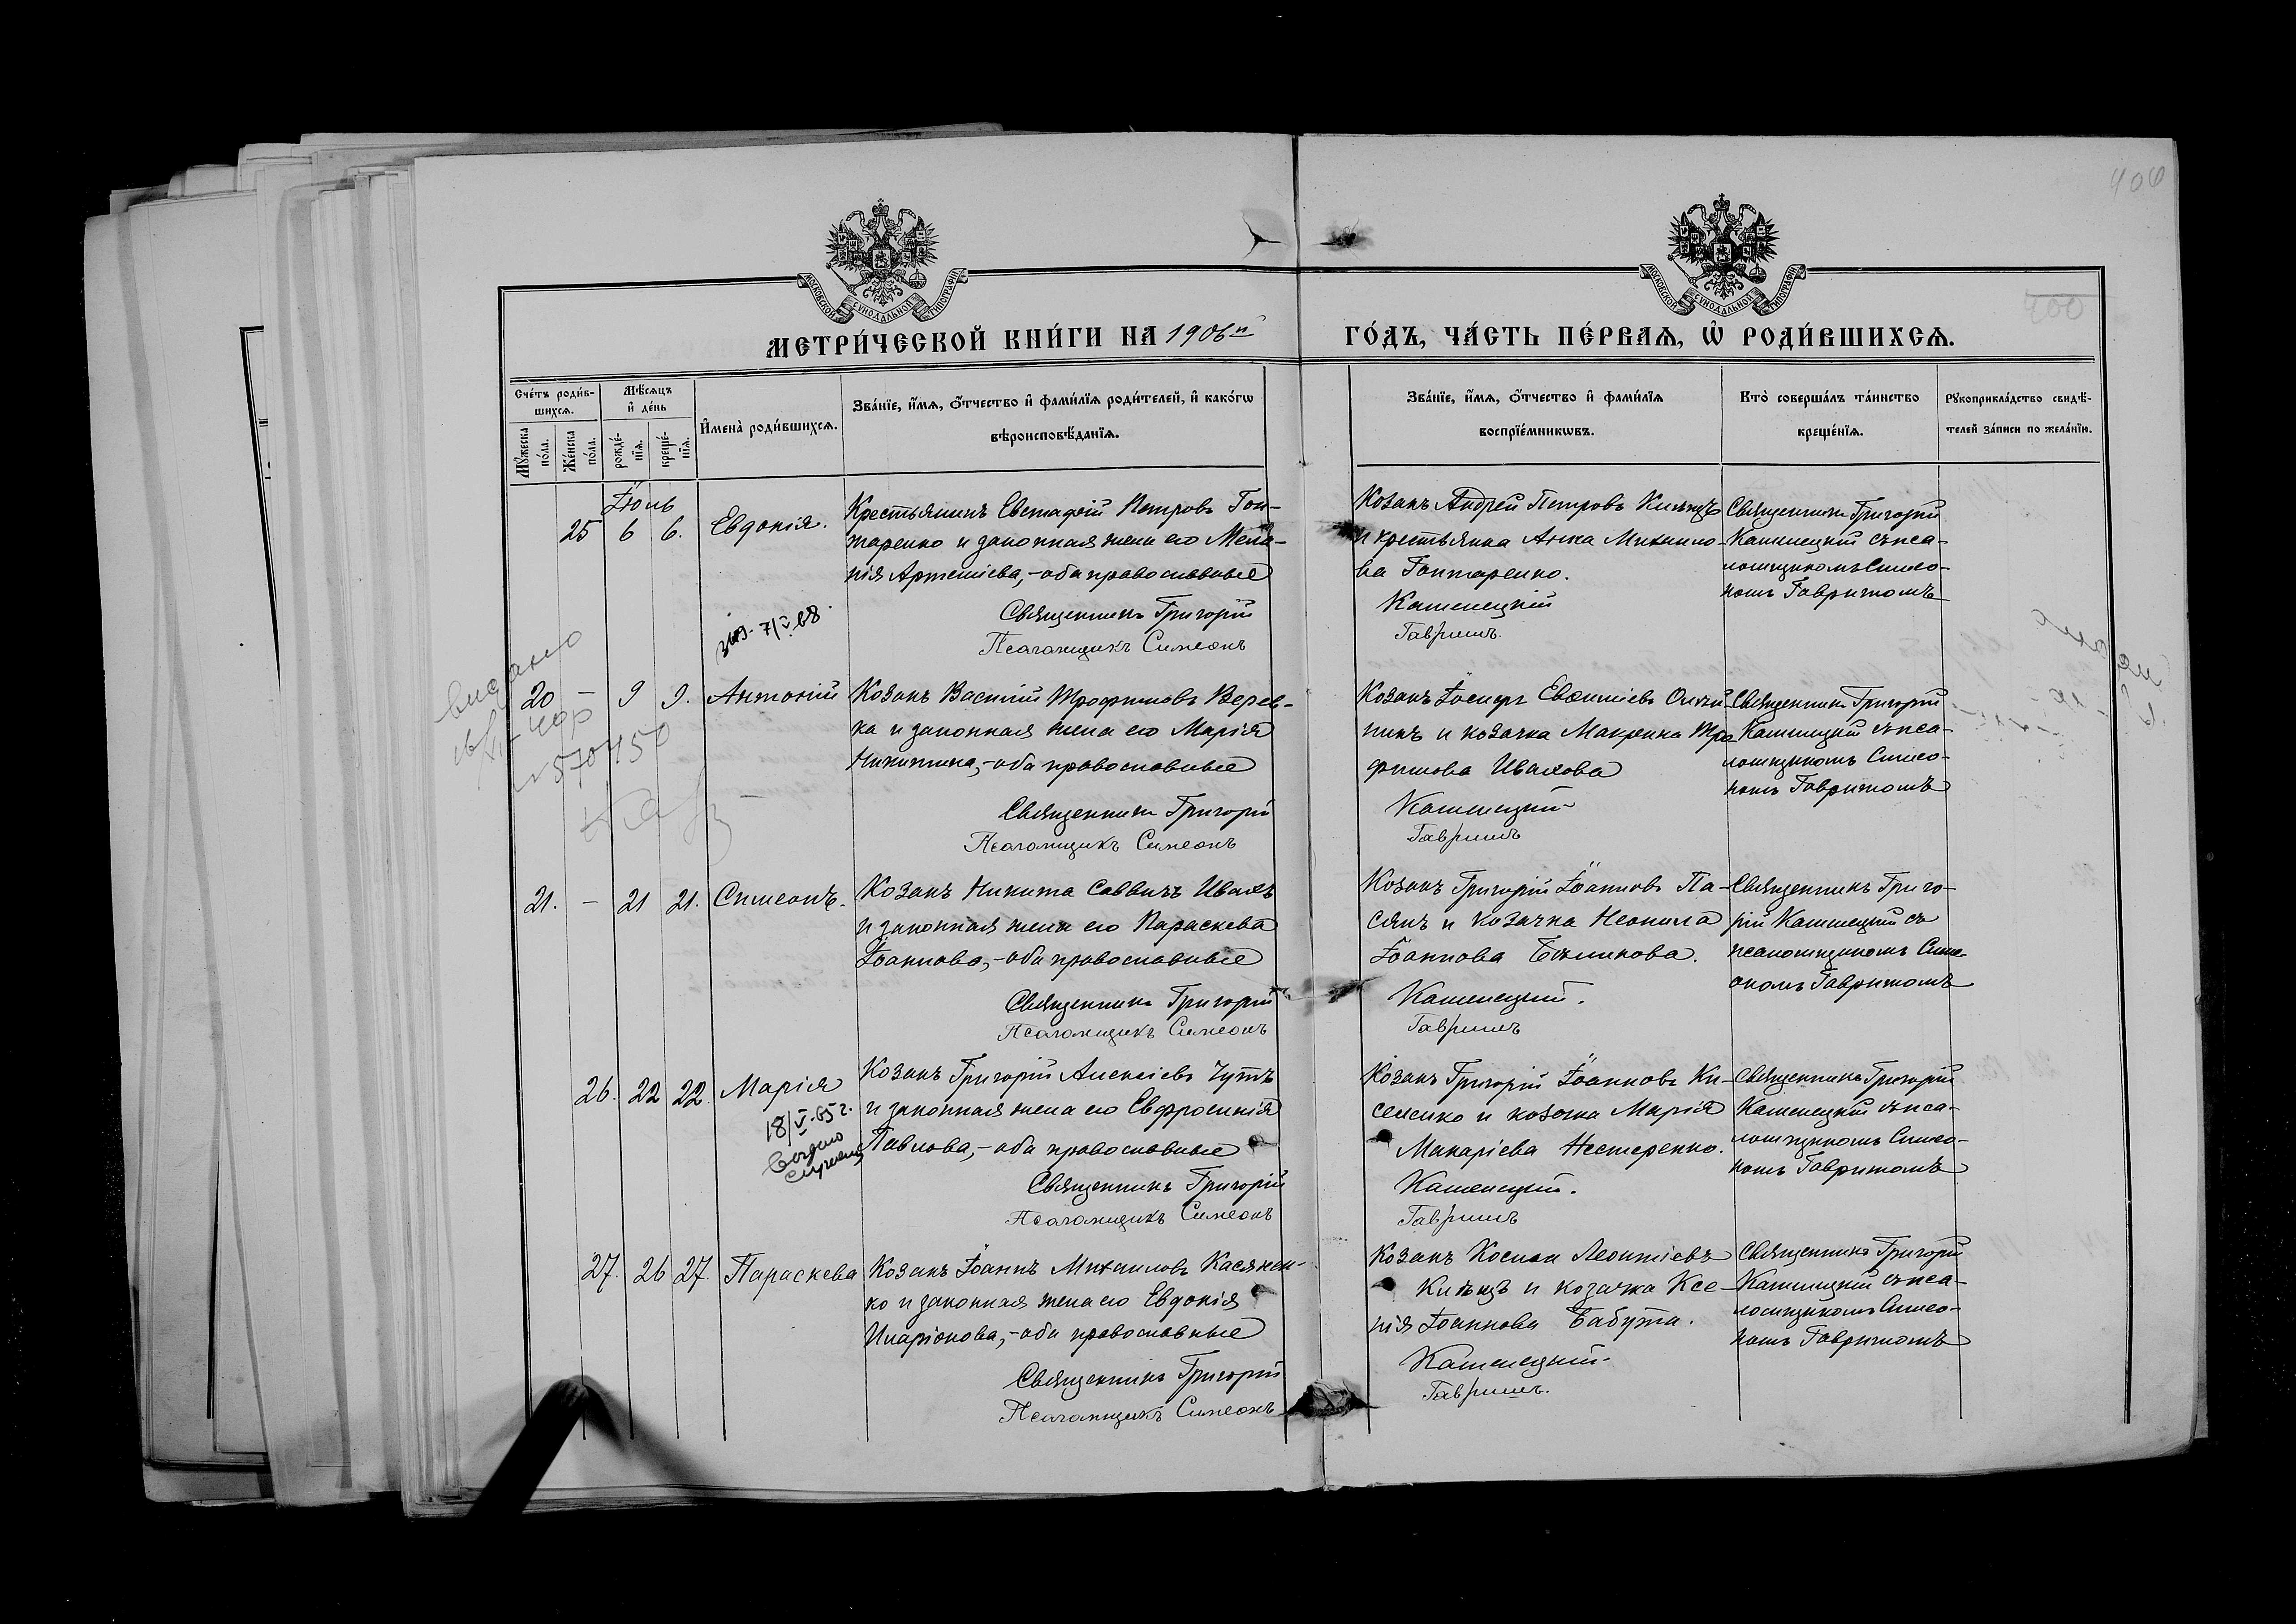 406
400
МОСКОВСКОЙ СѴНОДАЛЬНОЙ ТИПОГРАФІИ
МОСКОВСКОЙ СѴНОДАЛЬНОЙ ТИПОГРАФІИ
МЕТРИ́ЧЕСКОЙ КНИ́ГИ НА 1906й ГО́ДЪ, ЧА́СТЬ ПЕ́РВАѦ, Ѡ РОДИ́ВШИХСѦ.
Сче́тъ роди́в-
шихсѧ.
Мѹ́жеска по́ла.
Же́нска по́ла.
Мѣ́сѧцъ и де́нь
рожде́-нїѧ.
креще́-нїѧ.
И҆мена̀ роди́вшихсѧ.
Зва́нїе, и҆́мѧ, ѻ҆́тчество и҆ фами́лїѧ роди́телей, и҆ како́гѡ
вѣроисповѣ́данїѧ.
Зва́нїе, и҆́мѧ, ѻ҆́тчество и҆ фами́лїѧ
воспрїе́мникѡвъ.
Кто̀ соверша́лъ та́инство
креще́нїѧ.
Рꙋкоприкла́дство свидѣ́-
телей за́писи по жела́нїю.
Іюль
25 6 6. Евдокія.
Крестьянинъ Евстафій Петровъ Гон-
таренко и законная жена его Мела-
нія Артеміева, - оба православные
Священникъ Григорій
Псаломщикъ Симеонъ
Козакъ Андрей Петровъ Кияцъ
и крестьянка Анна Михаило-
ва Гонтаренко.
Каменецкій
Гавришъ.
Священникъ Григорій
Каменецкій съ пса-
ломщикомъ Симео-
номъ Гавришомъ
7/V.68.
видано
20 - 9 9. Антоній
№ 570450
Козакъ Василій Трофимовъ Верев-
ка и законная жена его Марія
Никитина, - оба православные
Священникъ Григорій
Псаломщикъ Симеонъ
Козакъ Іосифъ Евфиміевъ
и козачка Макрина Тро-
фимова Ивахова
Каменецкій
Гавришъ
Священникъ Григорій
Каменецкій съ пса-
ломщикомъ Симео-
номъ Гавришомъ
21. - 21 21. Симеонъ.
Козакъ Никита Саввичъ Ивахъ
и законная жена его Параскева
Іоаннова, - оба православные
Священникъ Григорій
Псаломщикъ Симеонъ
Козакъ Григорій Іоанновъ Па-
сякъ и козачка Неонила
Іоаннова
Каменецкій.
Гавришъ
Священникъ Григо-
рій Каменецкій съ
псаломщикомъ Симе-
ономъ Гавришомъ
26. 22 22. Марія
18/V-65 г.
Выдано
Козакъ Григорій Алексіевъ Чутъ
и законная жена его Евфросинія
Павлова, - оба православные
Священникъ Григорій
Псаломщикъ Симеонъ
Козакъ Григорій Іоанновъ Ки-
селенко и козачка Марія
Макаріева Нестеренко.
Каменецкій.
Гавришъ
Священникъ Григорій
Каменецкій съ пса-
ломщикомъ Симео-
номъ Гавришомъ
27. 26 27. Параскева
Козакъ Іоаннъ Михаиловъ Касянен-
ко и законная жена его Евдокія
Иларіонова, - оба православные
Священникъ Григорій
Псаломщикъ Симеонъ
Козакъ Косма Леонтіевъ
Кияцъ и козачка Ксе-
нія Іоаннова Бабута.
Каменецкій
Гавришъ.
Священникъ Григорій
Каменецкій съ пса-
ломщикомъ Симео-
номъ Гавришомъ